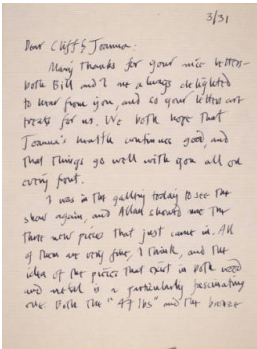 3/31
Dear Cliff & Joanna:
Many thanks for your nice letters-
both Bill and I are always delighted
to hear from you, and so your letters are
treats for us. We both hope that
Joanna's health continues good, and
that things go well with you all on
every front.
I was in the gallery today to see the
show again, and Allan showed me the
three new pieces that just came in. All
of them are very fine, I think, and the
idea of the pieces that exist in both wood
and metal is a particularly fascinating
one. Both the "47 lbs" and the bronze